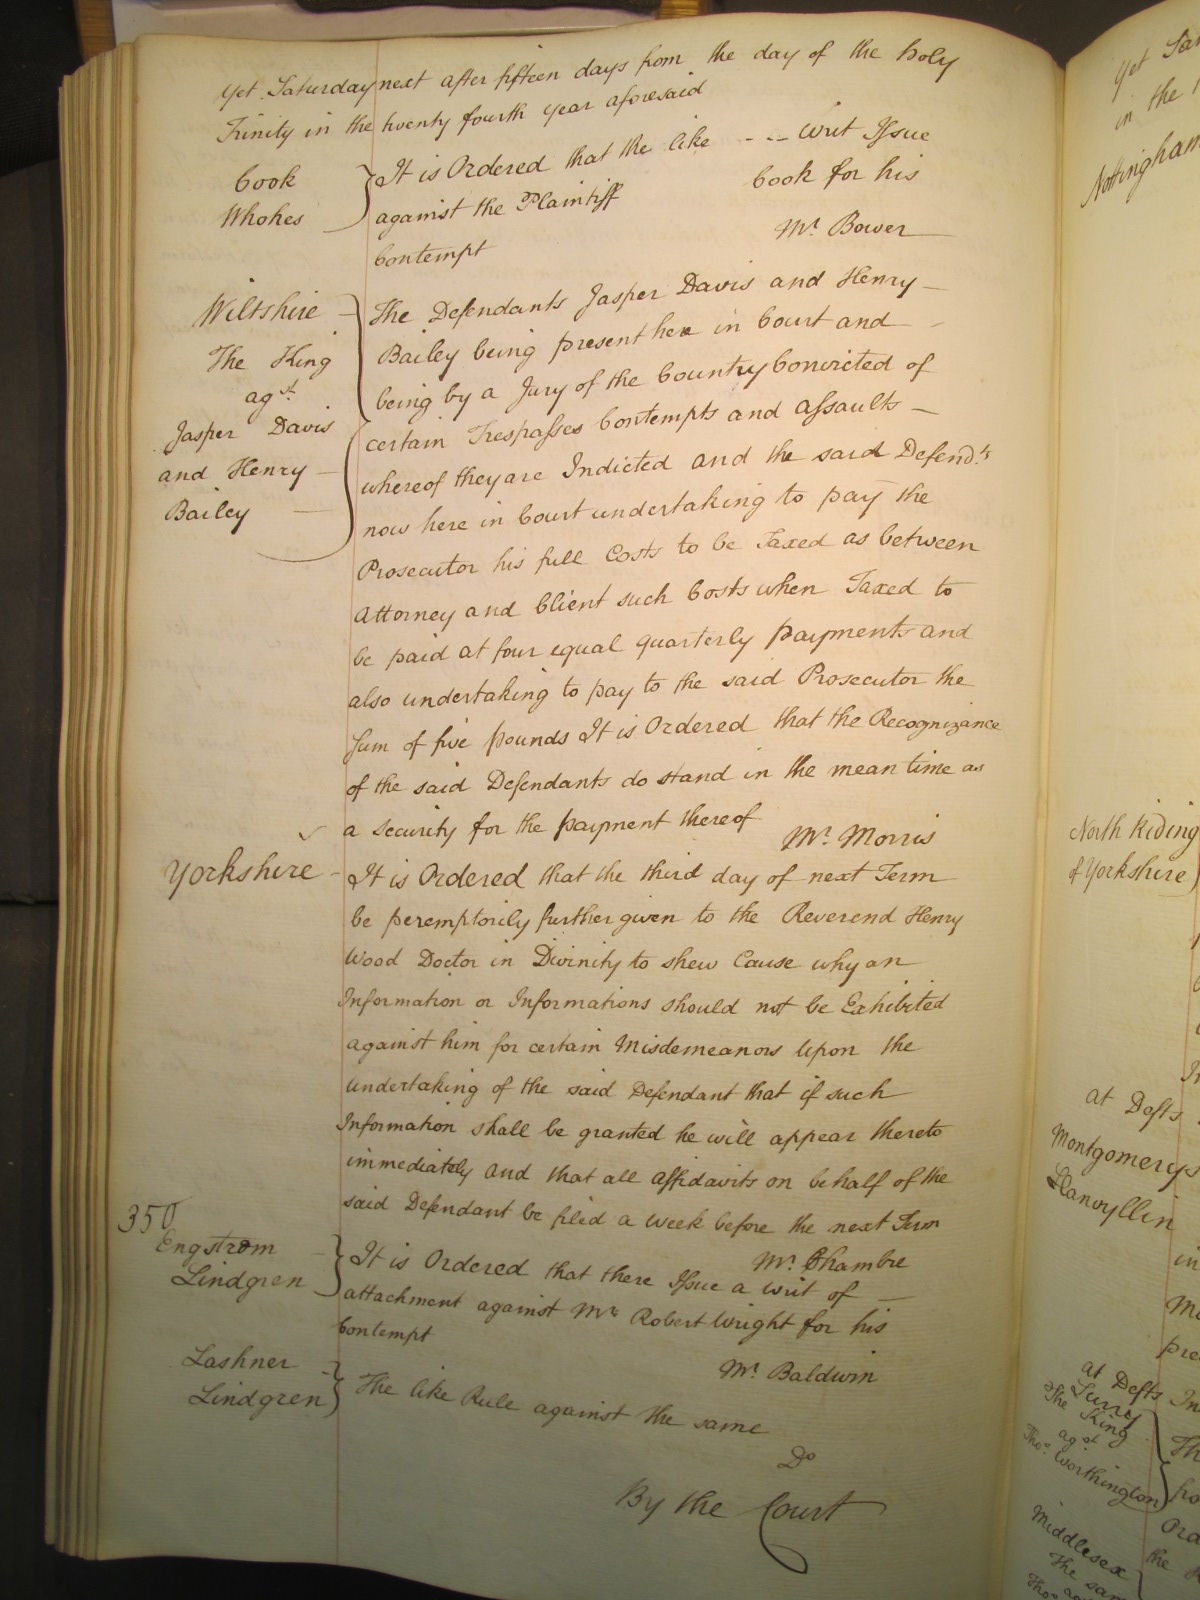 Yet Saturday next after fifteen days from the day of the holy
Trinity in the twenty fourth year aforesaid
Cook
Whohes
It is Ordered that the like --- Writ Issue
against the Plaintiff Cook for his
Contempt
Mr. Bower
Wiltshire
The King
agst.
Jasper Davis
and Henry
Bailey
The Defendants Jasper Davis and Henry
Bailey being present here in Court and
being by a Jury of the Country Convicted of
certain Trespasses Contempts and Assaults
whereof they are Indicted and the said Defend.ts
now here in Court undertaking to pay the
Prosecutor his full Costs to be Taxed as between
Attorney and Client such Costs when Taxed to
be paid at four equal quarterly payments and
also undertaking to pay to the said Prosecutor the
Sum of five pounds It is Ordered that the Recognizance
of the said Defendants do stand in the mean time as
a security for the payment thereof
Mr. Morris
Yorkshire
It is Ordered that the third day of next Term
be peremptorily further given to the Reverend Henry
Wood Doctor in Divinity to shew Cause why an
Information or Informations should not be Exhibited
against him for certain Misdemeanors Upon the
undertaking of the said Defendant that if such
Information shall be granted he will appear thereto
immediately and that all Affidavits on behalf of the
said Defendant be filed a week before the next Term
Mr. Chambre
350
Engstrom
Lindgren
It is Ordered that there Issue a writ of
attachment against Mr. Robert Wright for his
Contempt
Mr. Baldwin
Lashner
Lindgren
The like Rule against the same
Do
By the Court
Yet Sat
in the
Nottingham
North Riding
of Yorkshire
at Defts
Montgomerys
Llanvyllin
in
pre
at Defts
Surry
The King
agst
Thos. Worthington
In
Th
po
Ord
the
Middlesex
The same
Thos